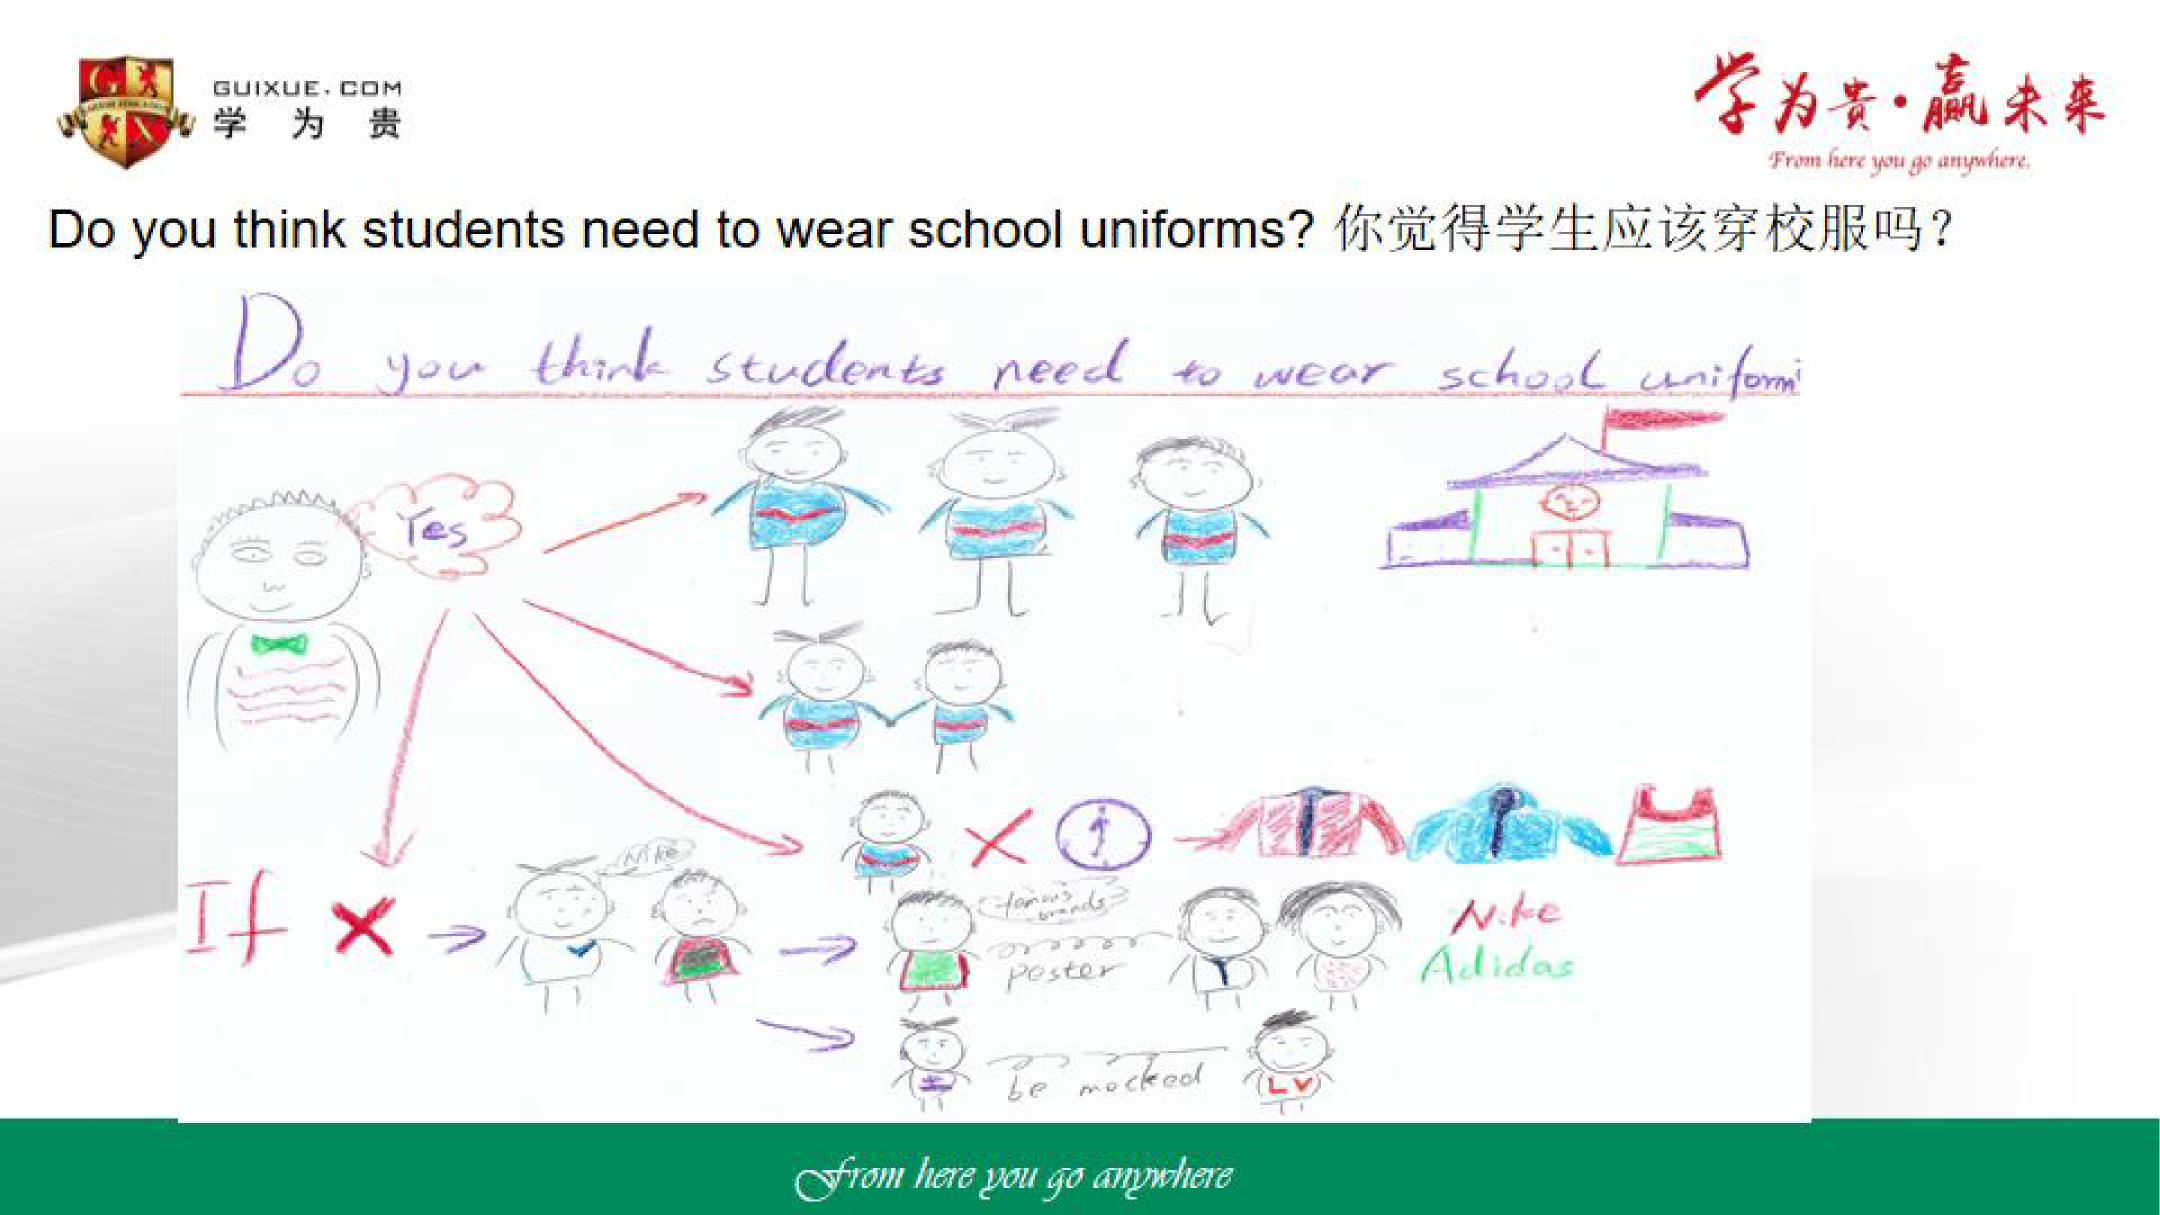 GUIXUE.COM
学为贵
学为贵·赢未来
From here you go anywhere.
Do you think students need to wear school uniforms? 你觉得学生应该穿校服吗？
Do you think students need to wear school uniform
Yes
Nike
If
famous
brands
poster
Nike
Adidas
be mocked
LV
From here you go anywhere